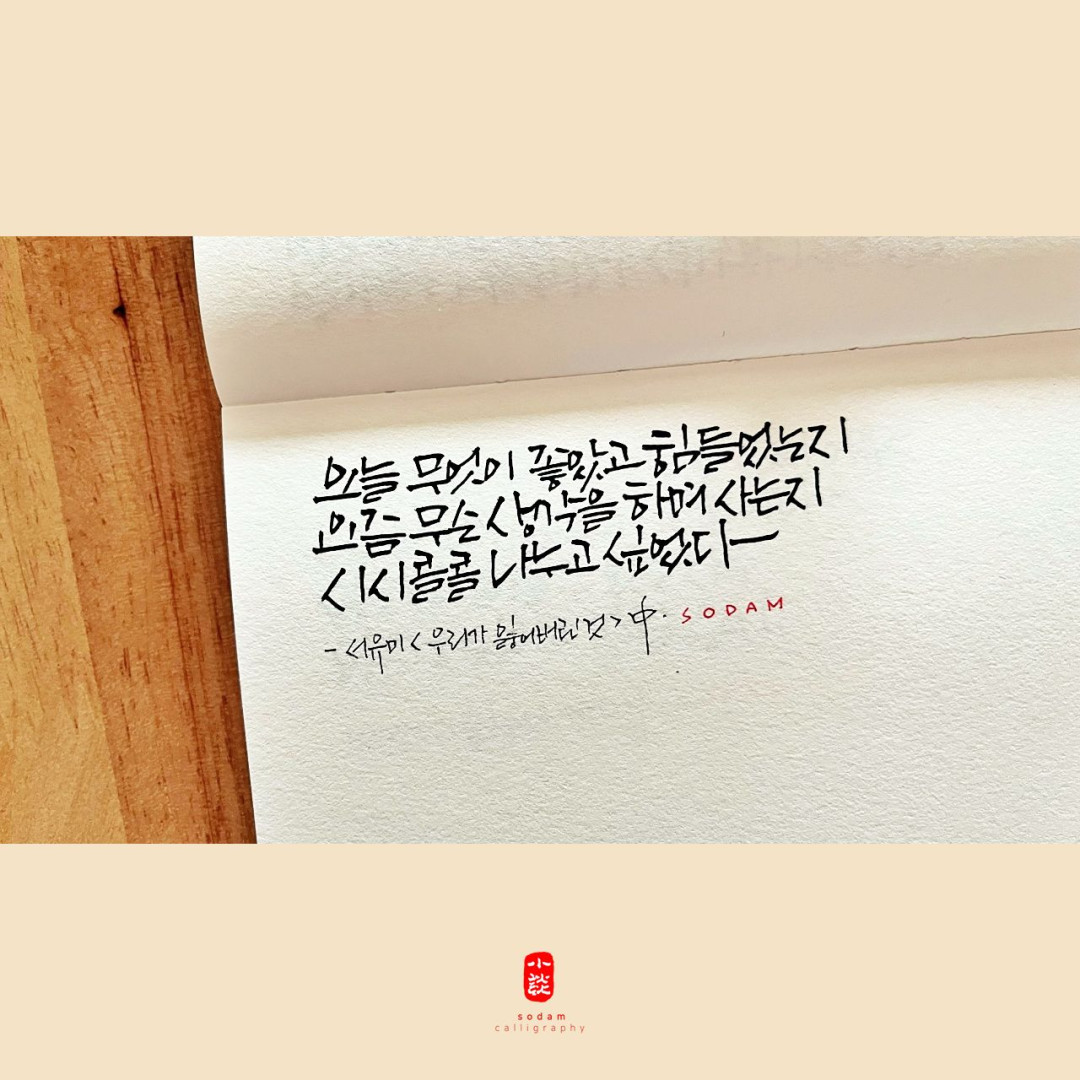 오늘 무엇이 좋았고 힘들었는지
요즘 무슨 생각을 하며 사는지
시시콜콜 나누고 싶었다
- 서유미 <우리가 잃어버린 것> 中. SODAM
小談
sodam
calligraphy